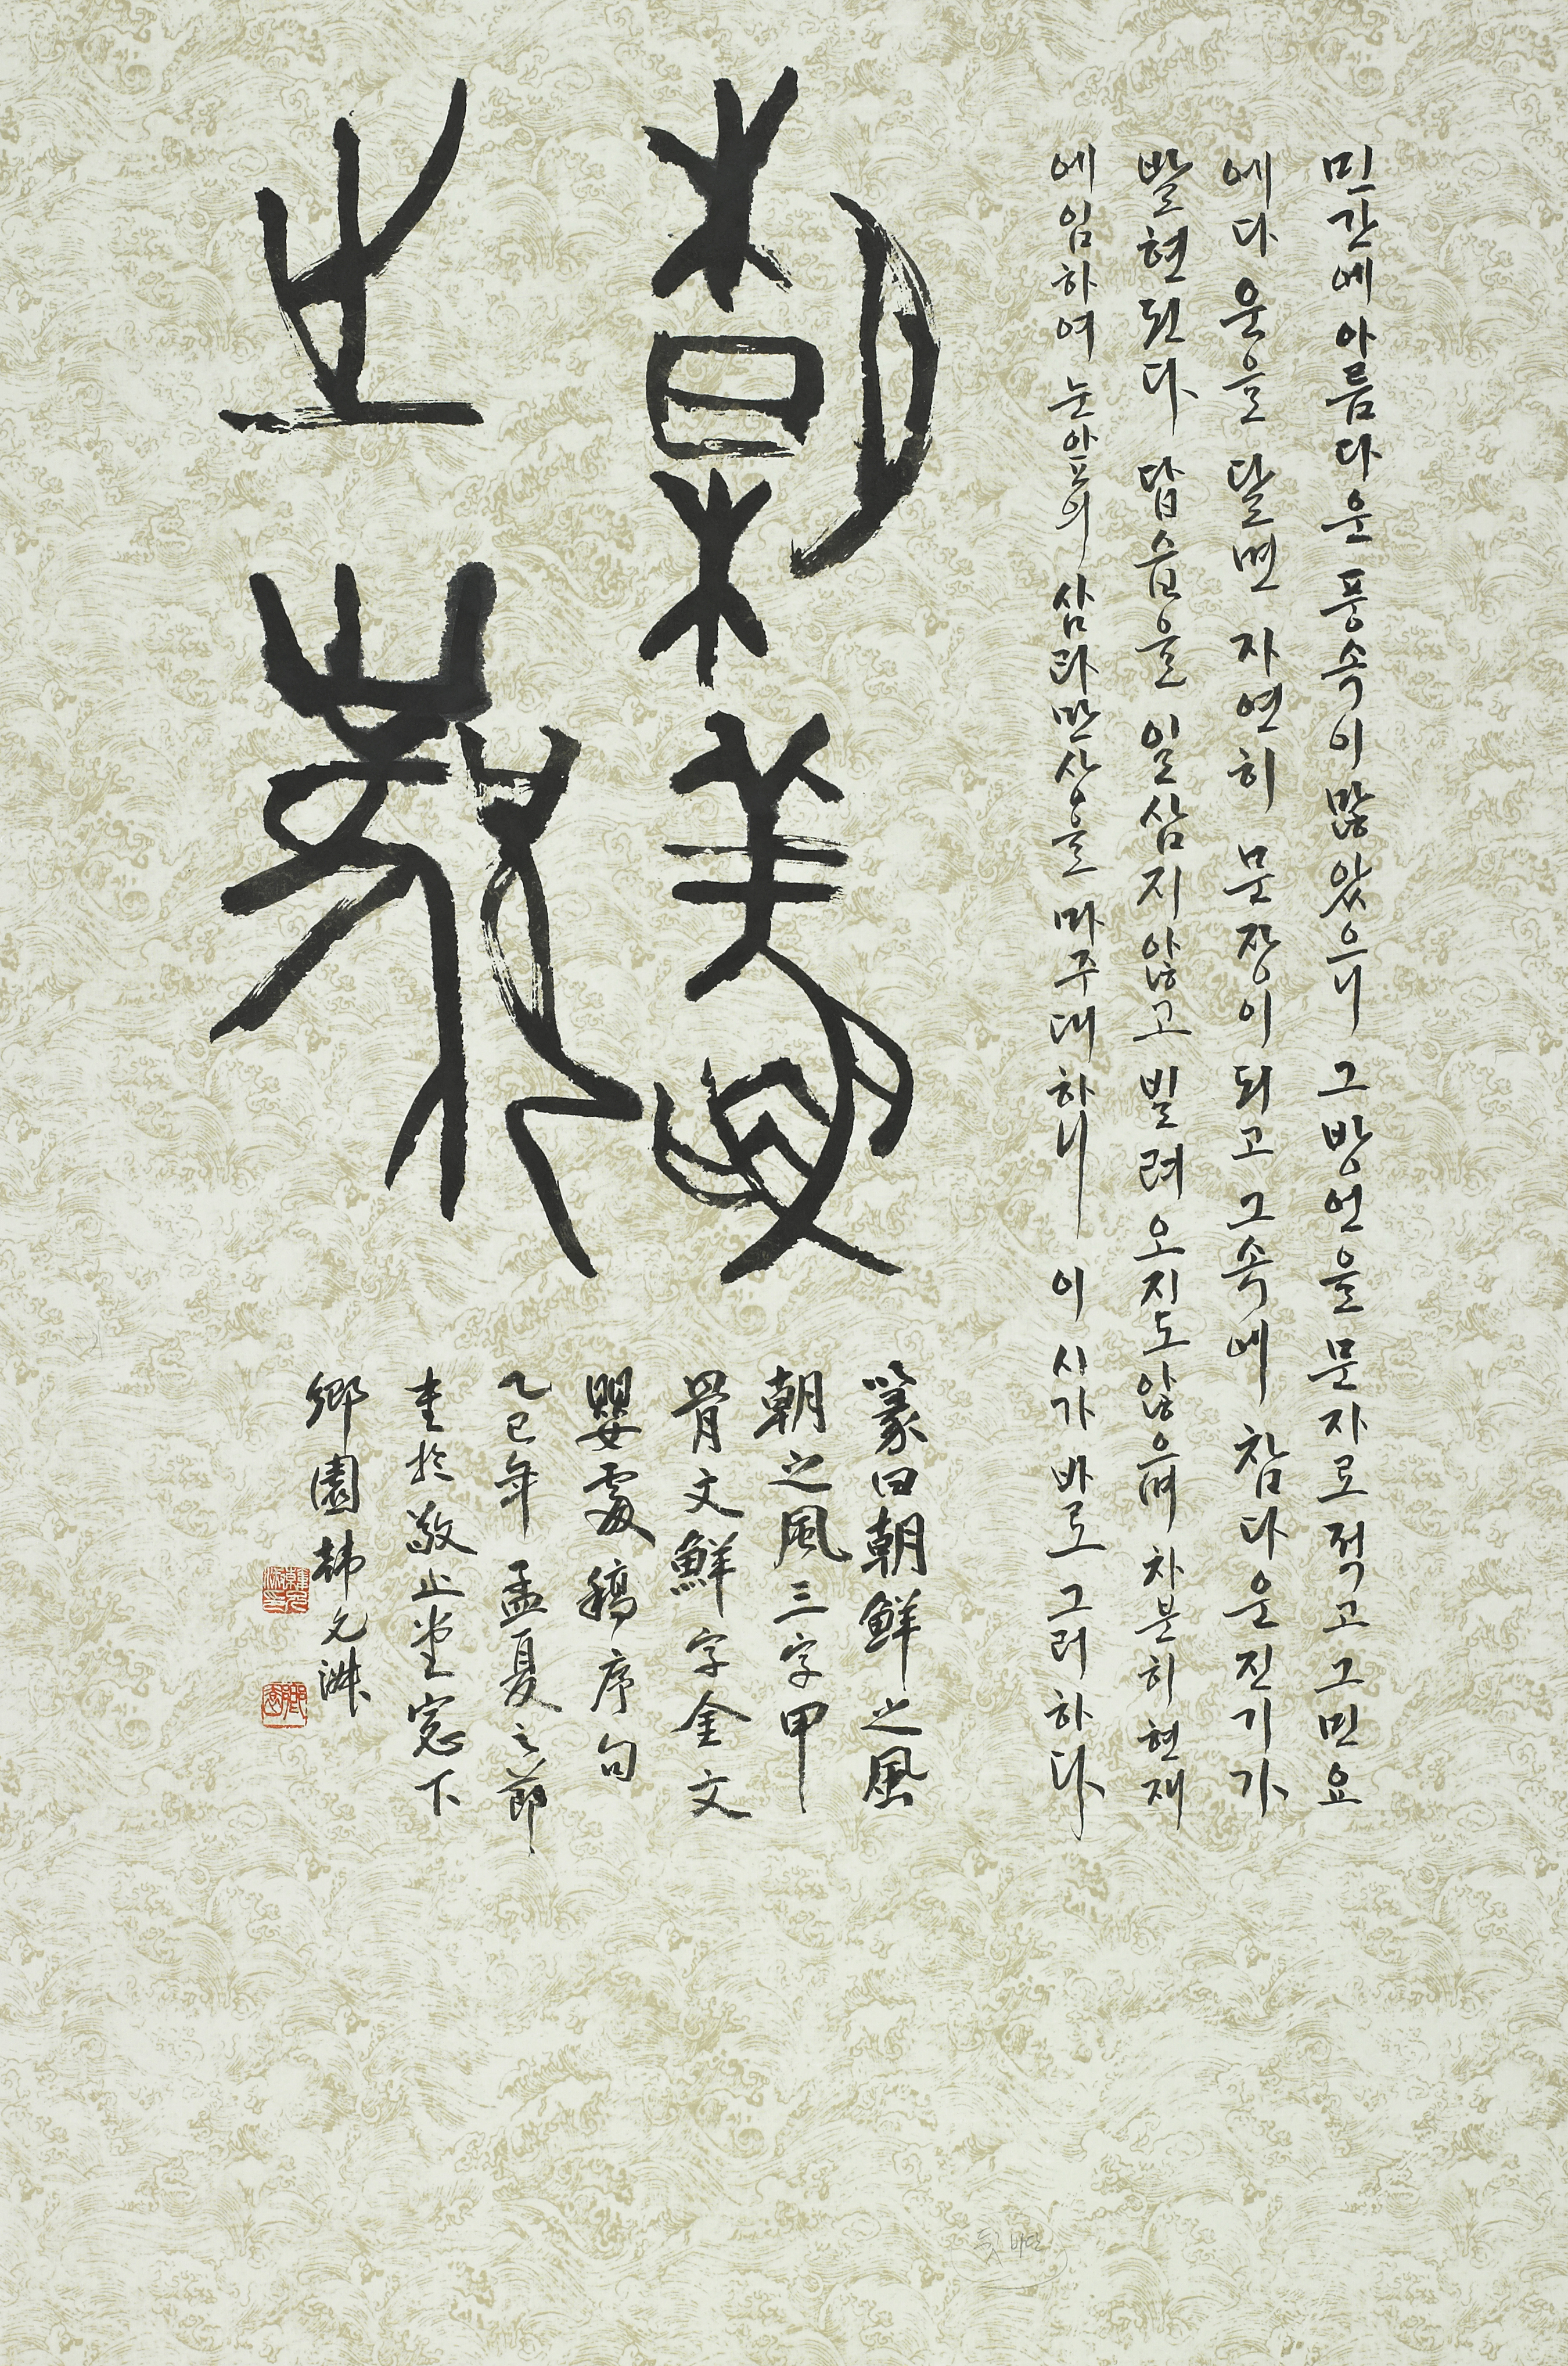 민간에 아름다운 풍속이 많았으니 그 방언을 문자로 적고 그 민요
에다 운을 달면 자연히 문장이 되고 그 속에 참다운 진기가
발현된다 답습을 일삼지 않고 빌려오지도 않으며 차분히 현재
에 임하여 눈앞의 삼라만상을 마주 대하니 이 시가 바로 그러하다
朝鮮
之風
篆曰朝鮮之風
朝之風三字甲
骨文鮮字金文
嬰處稿序句
乙巳年孟夏之節
於敬止堂窓下
鄕園韓允淋
뒷바탕